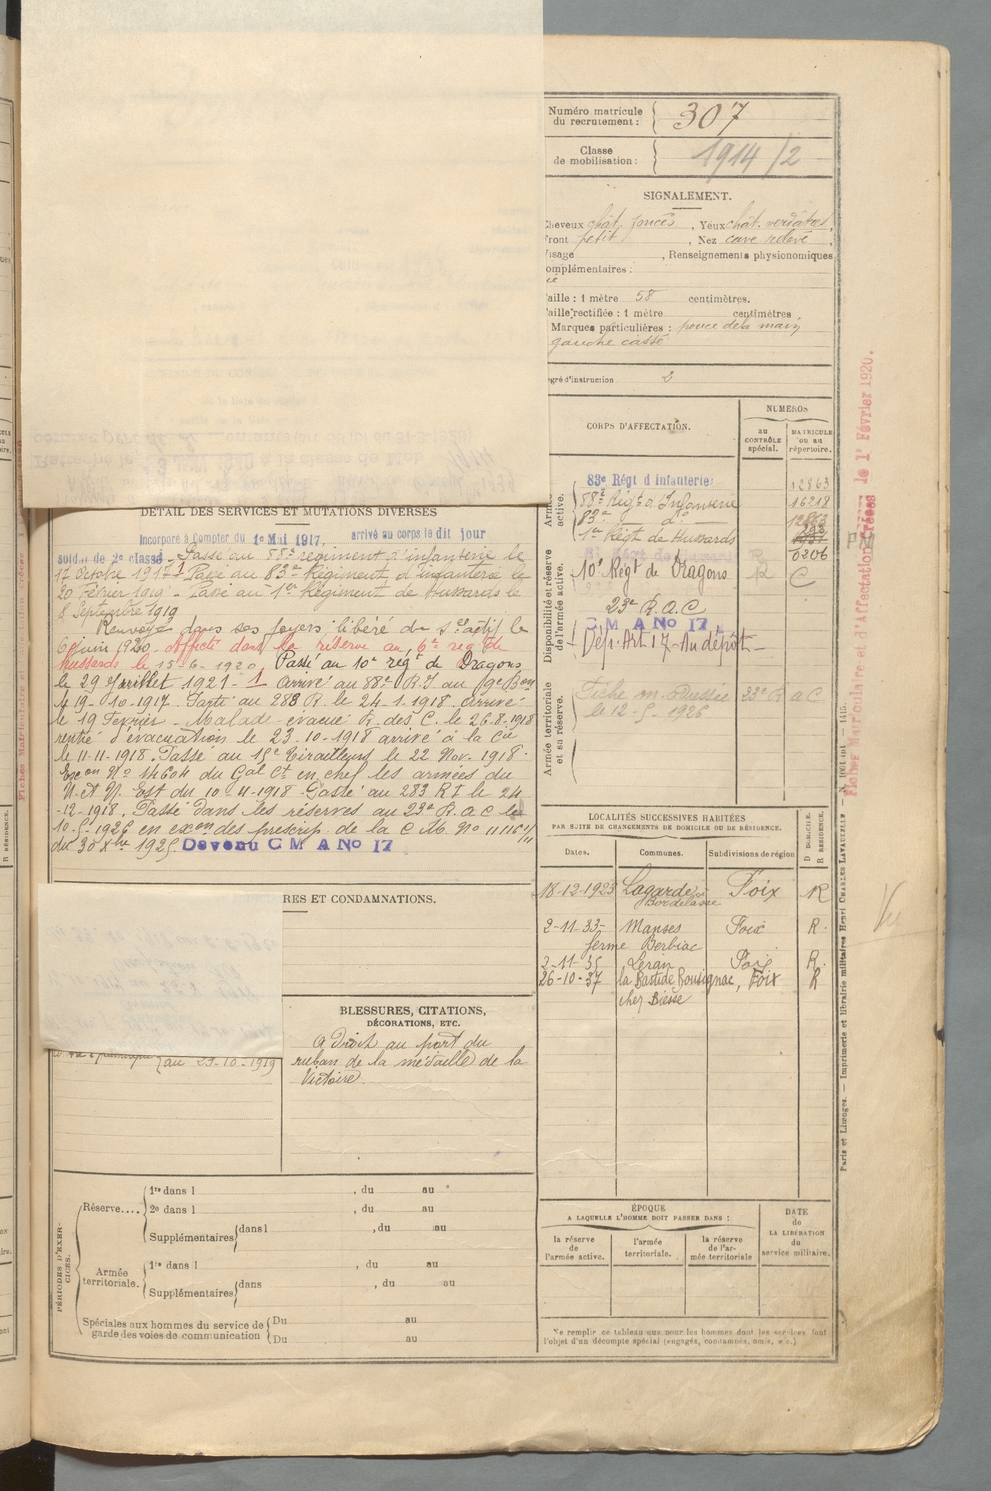 Numéro matricule
du recrutement :
307
Classe
de mobilisation :
1914/2
SIGNALEMENT.
Cheveux chât. foncés, Yeux chât. verdâtres,
Front petit, Nez cave relevé,
Visage , Renseignements physionomiques
complémentaires :
Taille : 1 mètre 58 centimètres.
Taille rectifiée : 1 mètre centimètres.
Marques particulières : pouce de la main
gauche cassé
Degré d'instruction 2
CORPS D'AFFECTATION.
NUMÉROS
au
CONTRÔLE
spécial.
MATRICULE
ou au
répertoire.
Armée
active.
83e Régt d'infanterie 12863
88e Régt d'Infanterie 16218
83e d°
1er Régt de Hussards
6206
Disponibilité et réserve
de l'armée active.
10e Régt de Dragons R C
23e R.A.C
C M A No 17.
Dép. Art 17 - Au dépôt -
Armée territoriale
et sa réserve.
Fiche m. 23e R a C
le 12-5-1926
DÉTAIL DES SERVICES ET MUTATIONS DIVERSES
Incorporé à compter du 1e Mai 1917, arrivé au corps le dit jour
soldat de 2e classe - Passé au 88e régiment d'infanterie le
17 Octobre 1917 - Passé au 83e Régiment d'infanterie le
20 Février 1919 - Passé au 1er Régiment de Hussards le
8 Septembre 1919
Renvoyé dans ses foyers libéré du s. actif le
6 juin 1920. Affecté dans la réserve au 6e rég de
hussards le 15-6-1920. Passé au 10e régt de Dragons
le 29 Juillet 1921 - 1 Arrivé au 88e R.I au 9e Bon
le 19-10-1917. Parti au 283 R. le 24-1-1918. Arrivé
le 19 Février - Malade évacué R. des C. le 26.8.1918
rentré d'évacuation le 23-10-1918 arrivé à la Cie
le 11-11-1918. Passé au 15e Tirailleurs le 22 Nov. 1918.
No 14604 du Gal Ct en chef les armées du
N. et N. Est du 10-11-1918. Passé au 283 RI le 24
-12-1918. Passé dans les réserves au 23e R.a.c le
10-5-1926 en exon des prescrip. de la C.M. No 11116 1/11
du 30 Xbre 1925. Devenu C M A No 17
RES ET CONDAMNATIONS.
BLESSURES, CITATIONS,
DÉCORATIONS, ETC.
A Droit au port du
ruban de la médaille de la
Victoire.
au 23-10-1919
LOCALITÉS SUCCESSIVES HABITÉES
PAR SUITE DE CHANGEMENTS DE DOMICILE OU DE RÉSIDENCE.
Dates. Communes. Subdivisions de région D DOMICILE. R RÉSIDENCE.
18-12-1923 Lagarde Foix R
Bordelasse
2-11-33 Manses Foix R.
ferme Berbiac
2-11-35 Leran Foix R.
26-10-37 la Bastide Bousignac, Foix R
chez Biesse
PÉRIODES D'EXERCICES.
Réserve....
1re dans l , du au
2e dans l , du au
Supplémentaires dans l , du au
Armée
territoriale.
1re dans l , du au
Supplémentaires dans , du au
Spéciales aux hommes du service de
garde des voies de communication
Du au
Du au
ÉPOQUE
A LAQUELLE L'HOMME DOIT PASSER DANS :
la réserve
de
l'armée active.
l'armée
territoriale.
la réserve
de l'armée territoriale
DATE
de
LA LIBÉRATION
du
service militaire.
Ne remplir ce tableau que pour les hommes dont les services font
l'objet d'un décompte spécial (engagés, condamnés, omis, etc.)
Fiches Matriculaire et d'Affectation créées le 1er Février 1920.
Paris et Limoges. — Imprimerie et librairie militaires Henri CHARLES-LAVAUZELLE